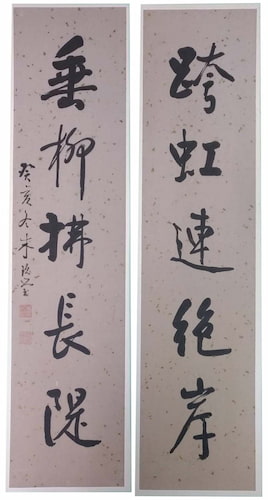 跨虹連絶岸
垂柳拂長隄
癸亥冬朱